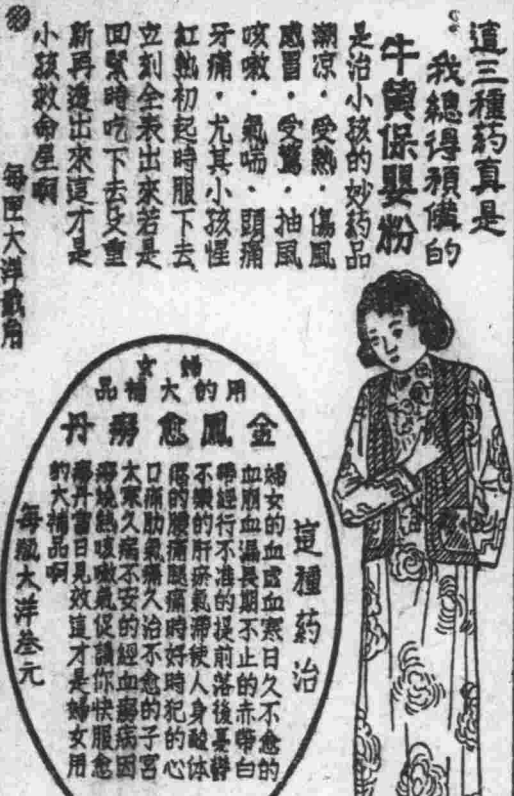 這三種药真是
我總得預備的
牛黃保嬰粉
是治小孩的妙药品
潮凉·受熱·傷風
感冒·受驚·抽風
咳嗽·氣喘·頭痛
牙痛·尤其小孩惺
紅熱初起時服下去
立刻全表出來若是
回緊時吃下去又重
新再漫出來這才是
小孩救命星啊
每匣大洋貳角
婦女
用的大補品
金鳳愈癆丹
這種药治
婦女的血虛血寒日久不愈的
血崩血漏長期不止的赤帶白
帶經行不准的提前落後憂鬱
不樂的肝瘀氣滯使人身酸体
倦的腰痛腿痛時好時犯的心
口痛肋氣痛久治不愈的子宮
大寒久病不安的經血癆病因
癆燒熱咳嗽氣促請你快服愈
癆丹當日見效這才是婦女用
的大補品啊
每瓶大洋叁元